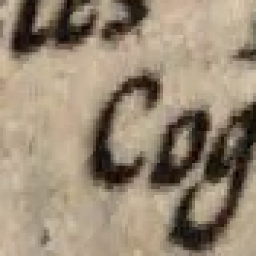 les
Cog